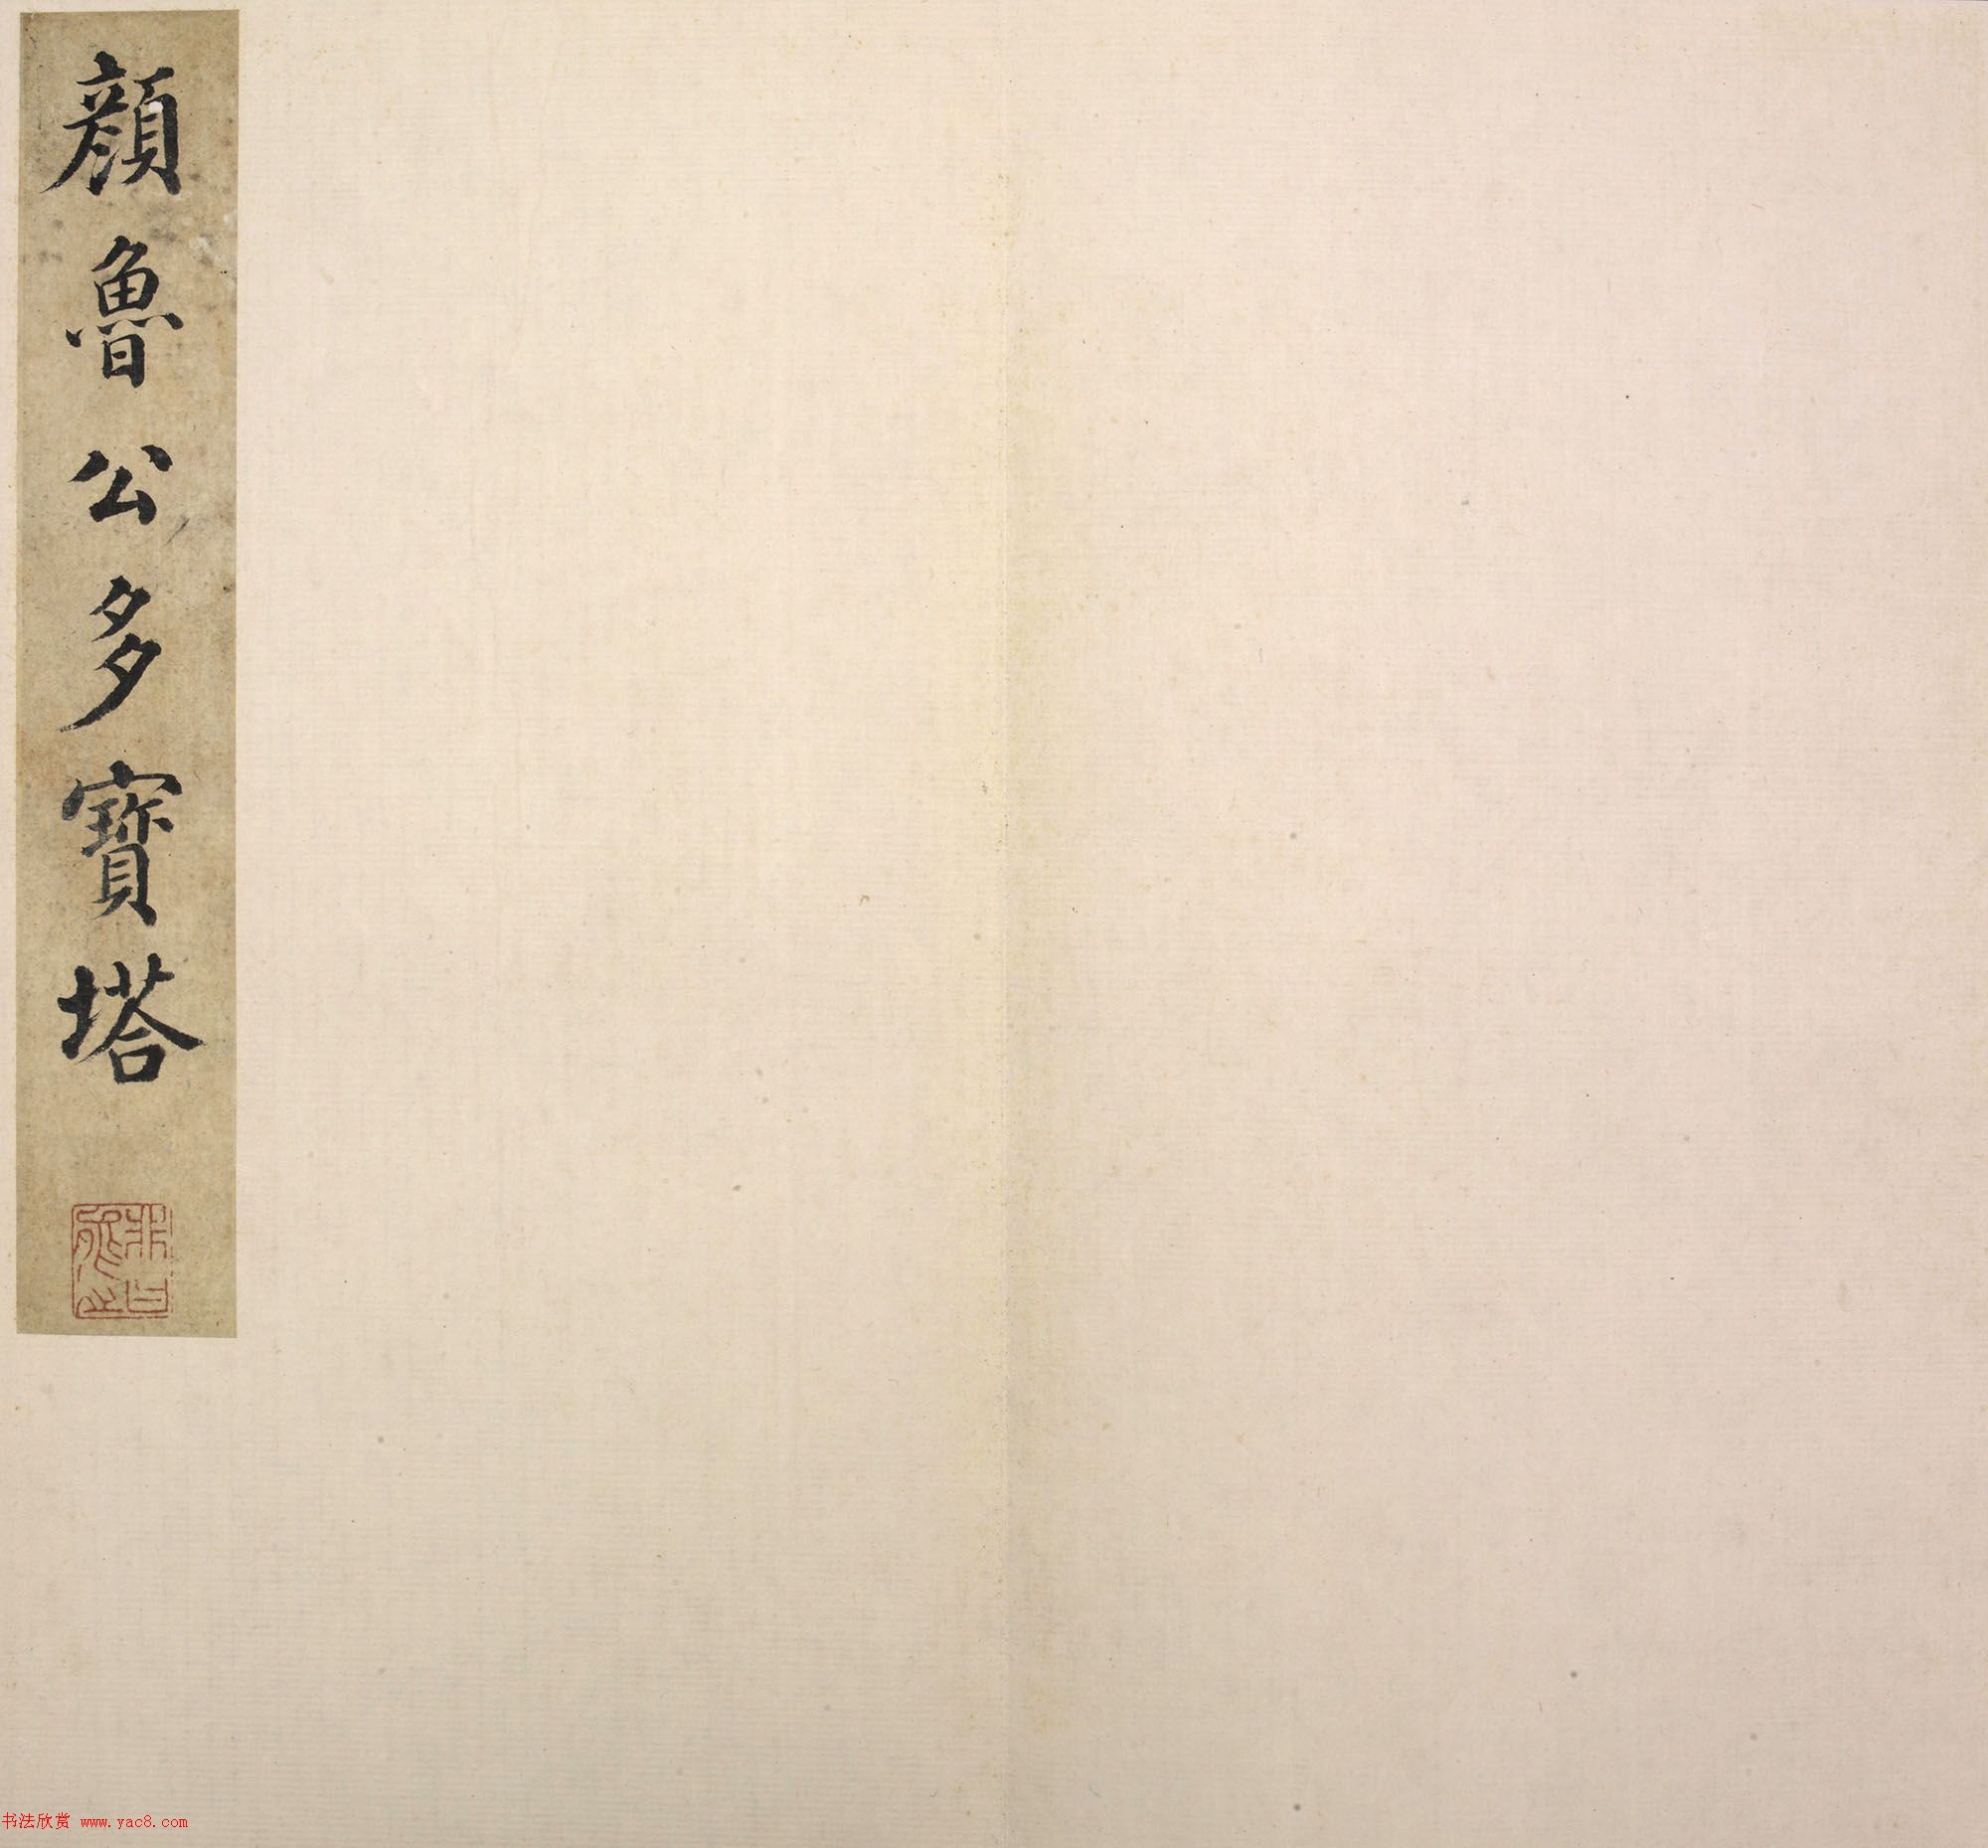 顔魯公多寶塔
书法欣赏 www.yac8.com